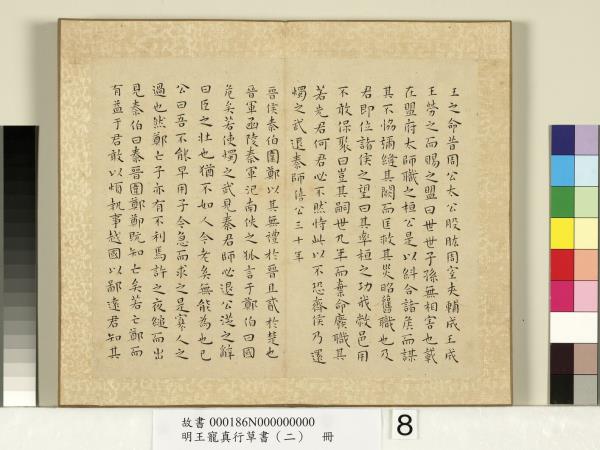 王之命昔周公大公股肱周室夾輔成王成
王勞之而賜之盟曰世世子孫無相害也載
在盟府太師職之桓公是以糾合諸侯而謀
其不協彌縫其闕而匡救其災昭舊職也及
君即位諸侯之望曰其率桓之功我敝邑用
不敢保聚曰豈其嗣世九年而棄命廢職其
若先君何君必不然恃此以不恐齊侯乃還
燭之武退秦師僖公三十年
晉侯秦伯圍鄭以其無禮於晉且貳於楚也
晉軍函陵秦軍氾南佚之狐言于鄭伯曰國
危矣若使燭之武見秦君師必退公從之辭
曰臣之壯也猶不如人今老矣無能為也已
公曰吾不能早用子今急而求之是寡人之
過也然鄭亡子亦有不利焉許之夜縋而出
見秦伯曰秦晉圍鄭鄭既知亡矣若亡鄭而
有益于君敢以煩執事越國以鄙遠君知其
故書 000186N000000000
明王寵真行草書(二) 冊
8